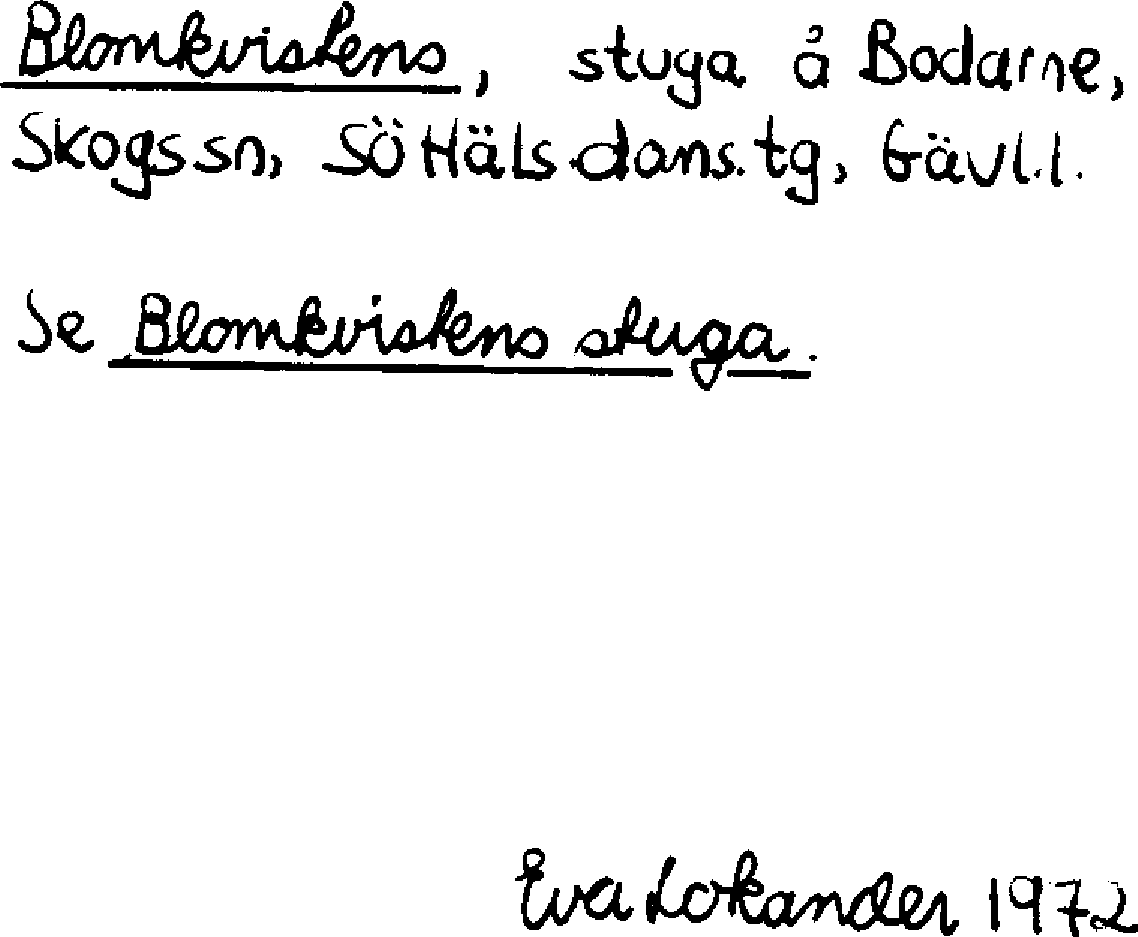 Blomkvistens, stuga å Bodarne,
Skogs sn, SÖ Häls doms. tg, Gävl.l.
Se Blomkvistens stuga.
Eva Lokander 1972